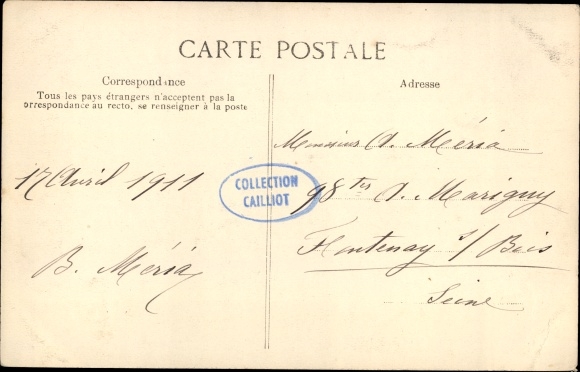 CARTE POSTALE
Correspondance
Tous les pays étrangers n'acceptent pas la
correspondance au recto, se renseigner à la poste
17 Avril 1911
B. Méria
COLLECTION
CAILLIOT
Adresse
Monsieur A. Méria
98 A. Marigny
Fontenay s/ Bois
Seine